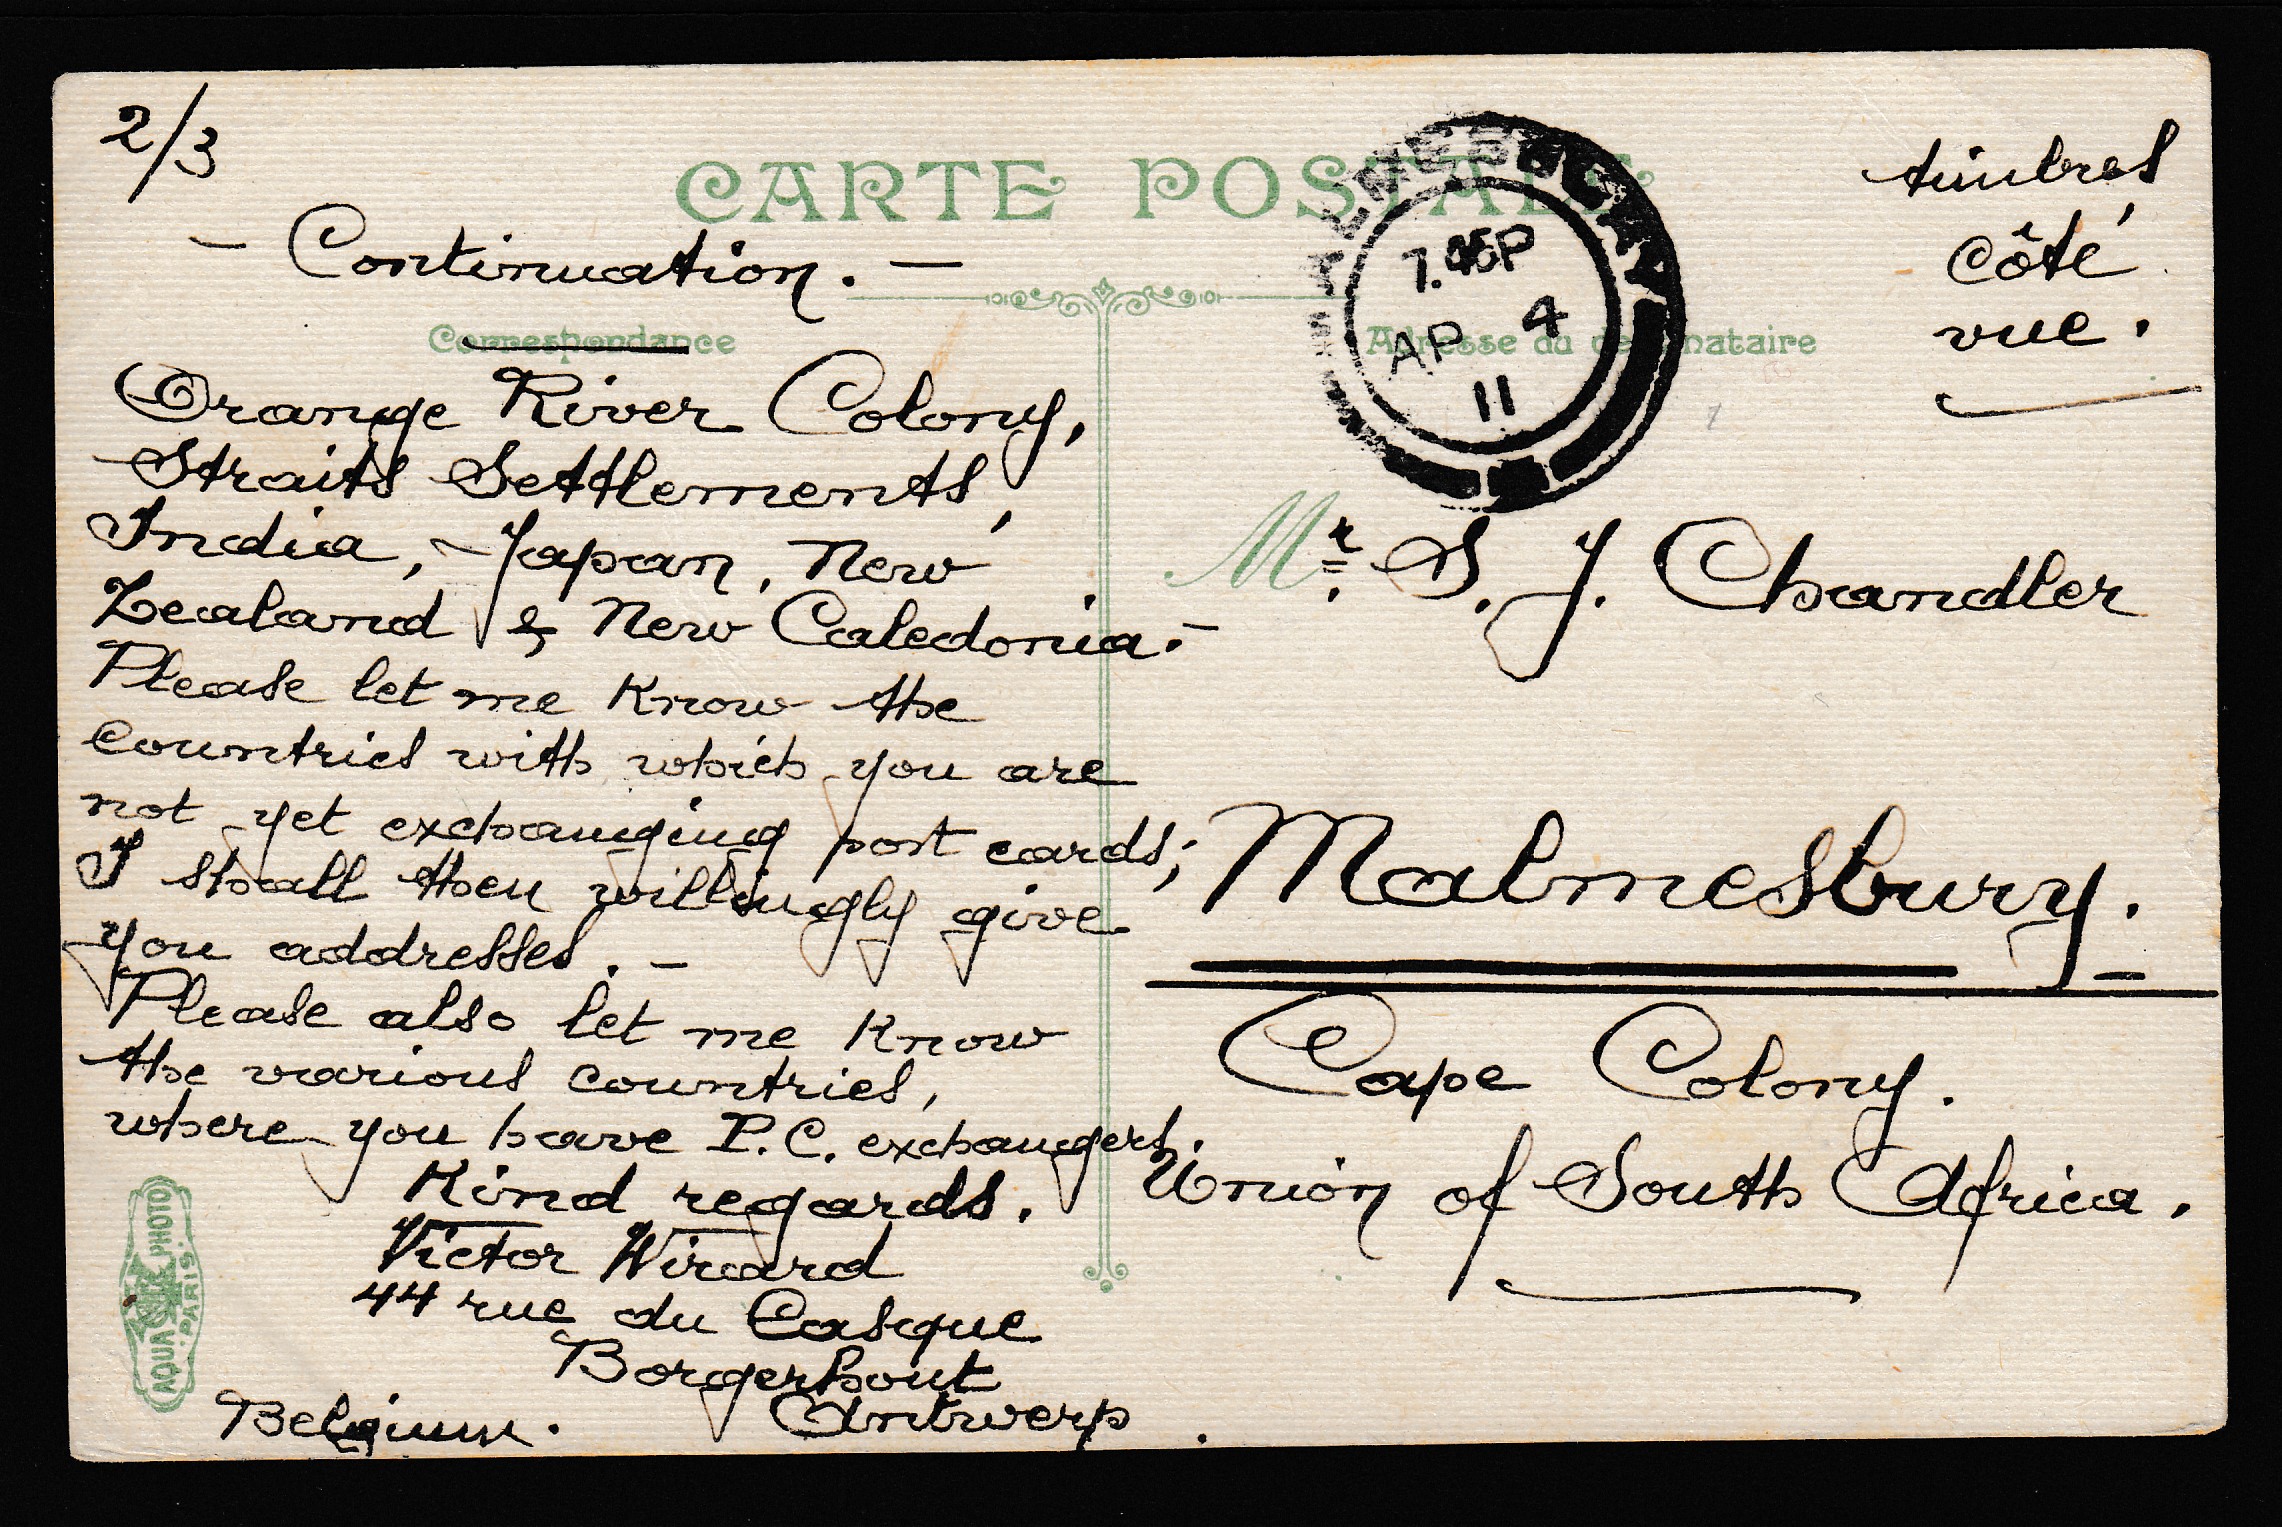 2/3
CARTE POSTALE
timbres
côté
vue.
MALMESBURY
7.45P
AP 4
11
— Continuation. —
Correspondance
Adresse du destinataire
Orange River Colony,
Straits Settlements,
India, Japan, New
Zealand & New Caledonia.—
Please let me know the
countries with which you are
not yet exchanging post cards;
I shall then willingly give
you addresses. —
Please also let me know
the various countries,
where you have P.C. exchangers.
Kind regards.
Victor Wirard
44 rue du Casque
Borgerhout
Antwerp.
Belgium.
AQUA PHOTO
PARIS
Mr. S. J. Chandler
Malmesbury. —
Cape Colony.
Union of South Africa.